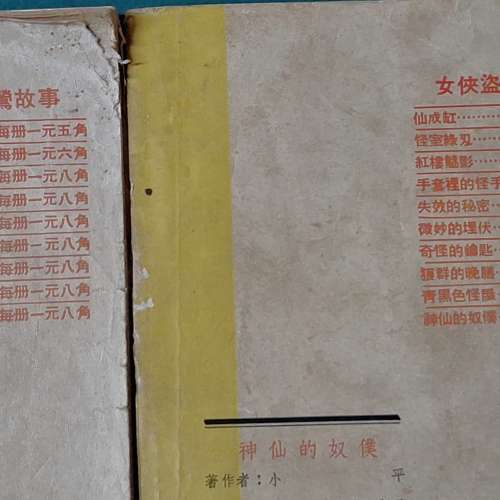 鶯故事
每册一元五角
每册一元六角
每册一元八角
每册一元八角
每册一元八角
每册一元八角
每册一元八角
每册一元八角
每册一元八角
女俠盜
仙成缸
怪室綠刄
紅樓魅影
手套裡的怪手
失敦的秘密
微妙的埋伏
奇怪的鑰匙
狼群的晚膳
青黑色怪
神仙的奴僕
神仙的奴僕
著作者：小 平